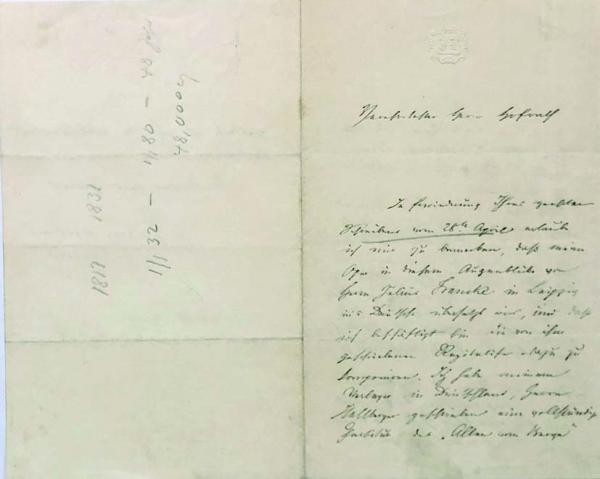 1/132 — 1/180 — 48
48,000
1819 1832
Verehrtester Herr Hofrath
In Erwiederung Ihres geehrten
Schreibens vom 28ten April erlaube
ich mir zu bemerken, daß meine
Oper in diesem Augenblicke von
Herrn Julius Francke in Leipzig
ins Deutsche übersetzt wird, und daß
ich beschäftigt bin die von ihm
geschriebenen Rezitative dazu zu
komponiren. Ich habe meinem
Verleger in Deutschland, Herrn
Hallberger geschrieben eine vollständige
Partitur des „Alten vom Berge"